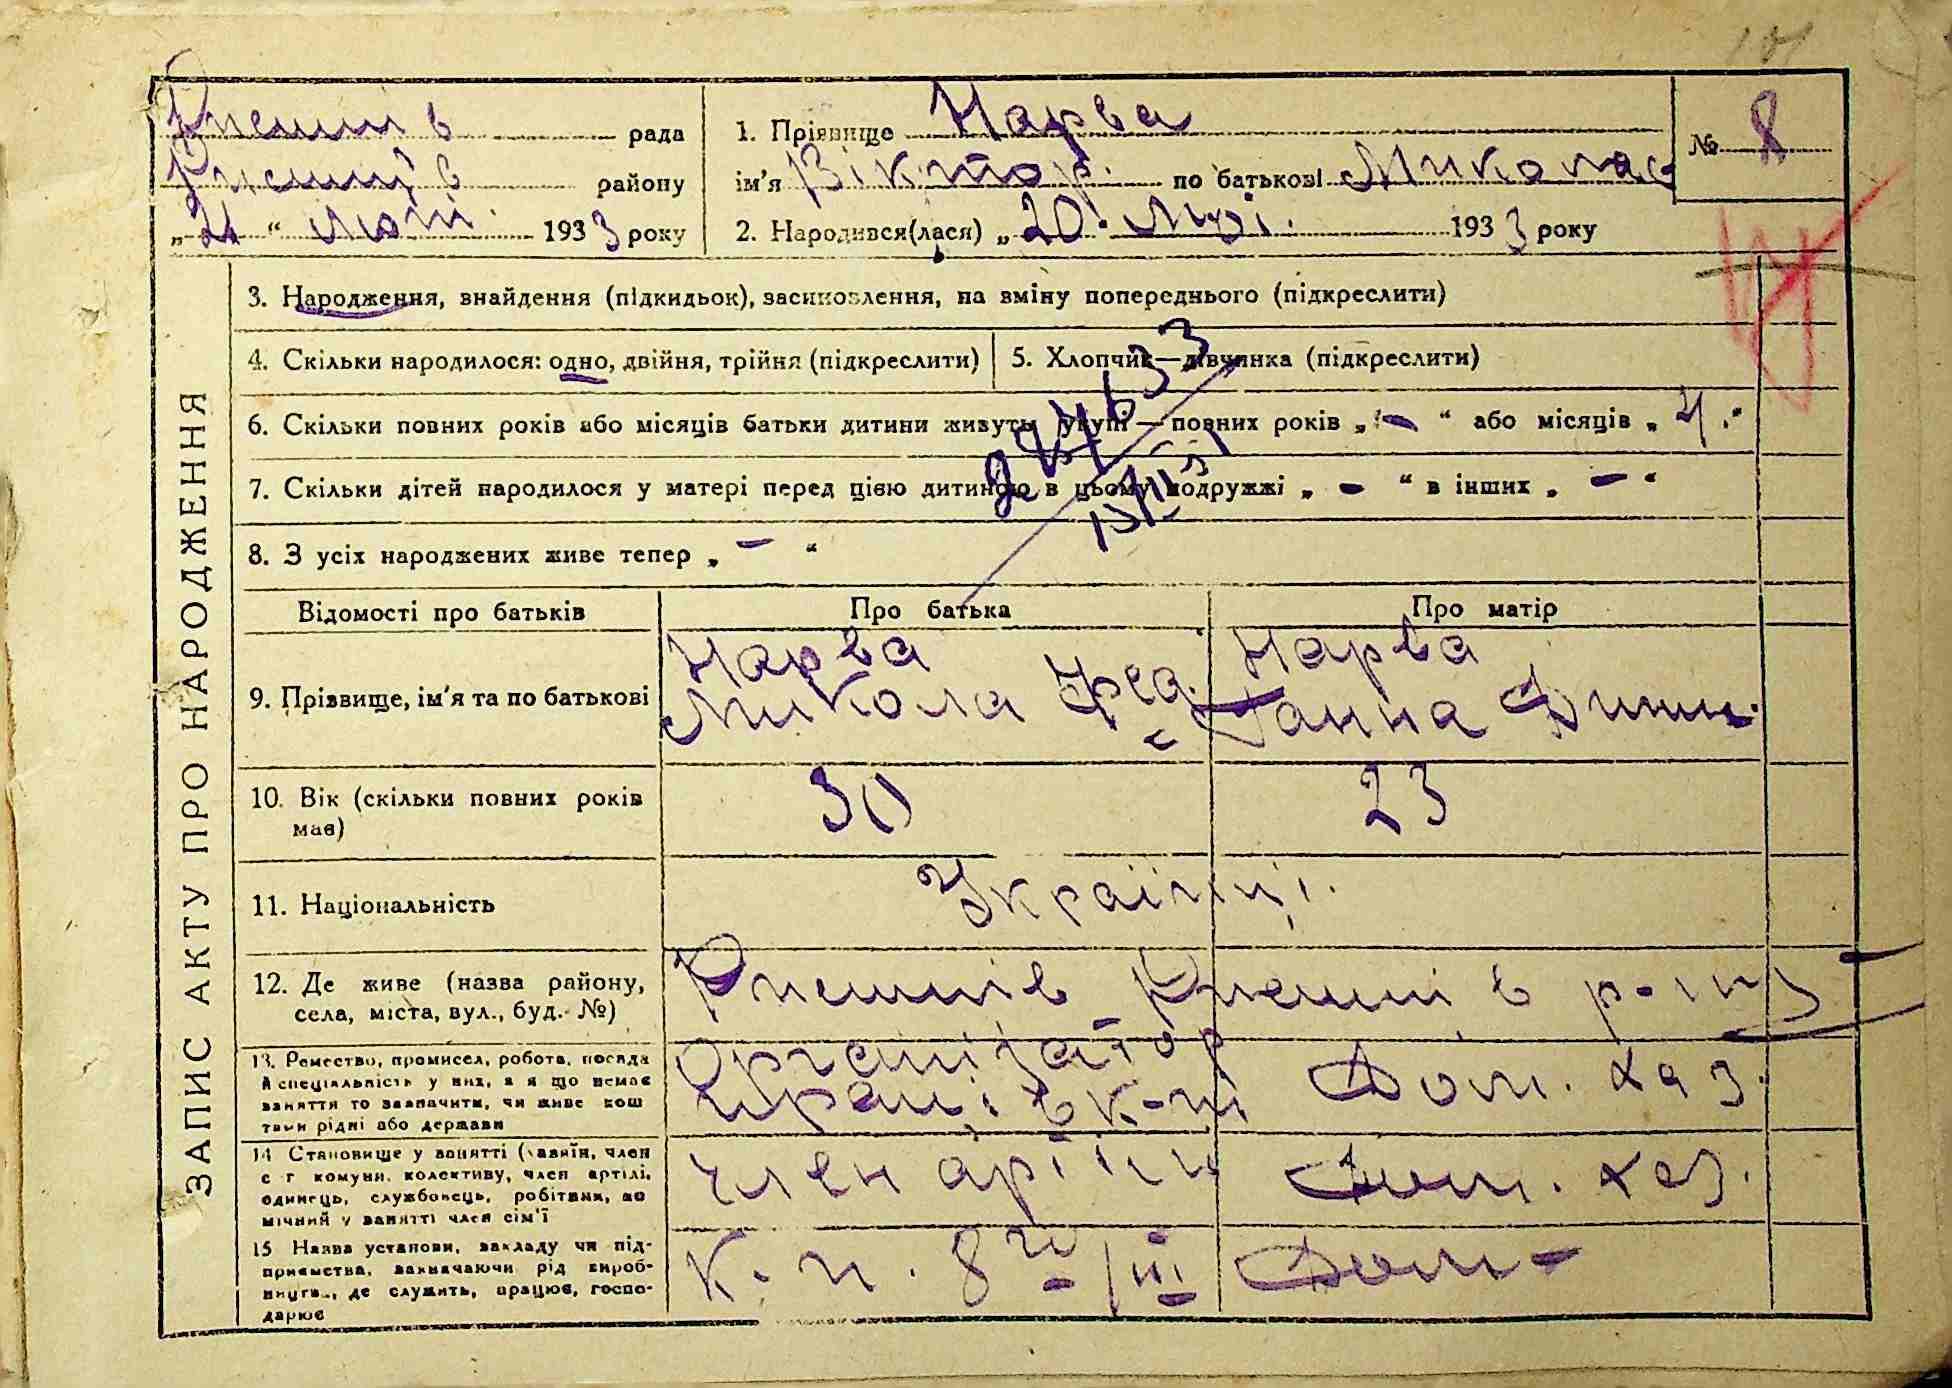 101
рада 1. Прізвище Нарва № 8
району ім'я Віктор. по батькові Микола
„21“ 1933 року 2. Народився(лася) „20. 1933 року
3. Народження, внайдення (підкидьок), засиновлення, на вміну попереднього (підкреслити)
4. Скільки народилося: одно, двійня, трійня (підкреслити) 5. Хлопчик—дівчинка (підкреслити)
6. Скільки повних років або місяців батьки дитини живуть укупі—повних років „-“ або місяців „4.“
7. Скільки дітей народилося у матері перед цією дитиною в цьому подружжі „-“ в інших „-“
8. З усіх народжених живе тепер „-“
Відомості про батьків Про батька Про матір
9. Прізвище, ім'я та по батькові Нарва Микола Фед. Нарва Ганна
10. Вік (скільки повних років має) 30 23
11. Національність Українці.
12. Де живе (назва району, села, міста, вул., буд. №)
13. Ремество, промисел, робота, посада й спеціальність у них, а якщо немає заняття то зазначити, чи живе коштами рідні або держави Організатор Дом. хаз.
14. Становище у занятті (хазяїн, член с г комуни, колективу, член артілі, одинець, службовець, робітник, помічний у занятті член сім'ї Член артілі Дом. хаз.
15 Назва установи, закладу чи підприємства, зазначаючи рід виробництва, де служить, працює, господарює Дом-
ЗАПИС АКТУ ПРО НАРОДЖЕННЯ